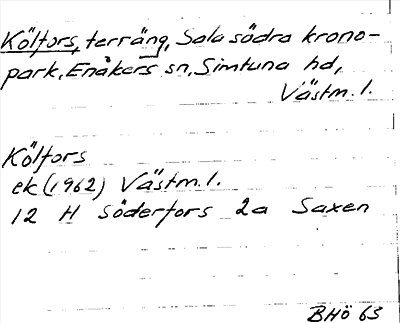 Kölfors, terräng, Sala södra krono-
park, Enåkers sn, Simtuna hd,
Västm. l.
Kölfors
ek (1962) Västm. l.
12 H Söderfors 2a Saxen
BHö 63